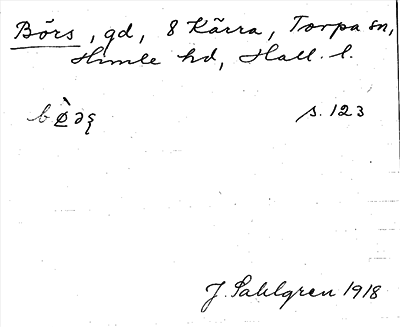 Börs, gd, 8 Kärra, Torpa sn,
Himle hd, Hall. l.
s. 123
J. Sahlgren 1918